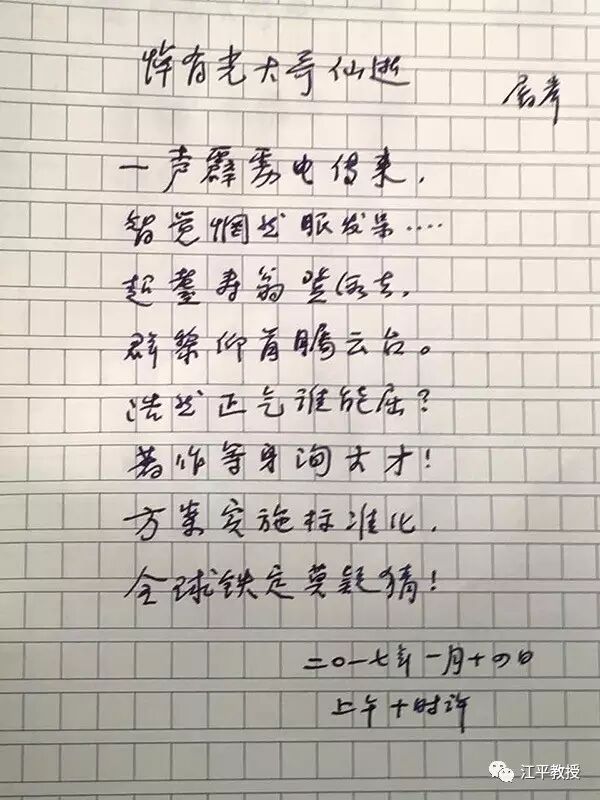 悼有光大哥仙逝
一声霹雳电传来，
智觉惘然眼发呆……
超耋寿翁登仙去，
群黎仰首瞩云台。
浩然正气谁能屈？
著作等身洵大才！
方案实施标准化，
全球铁定莫疑猜！
二〇一七年一月十四日
上午十时许
江平教授